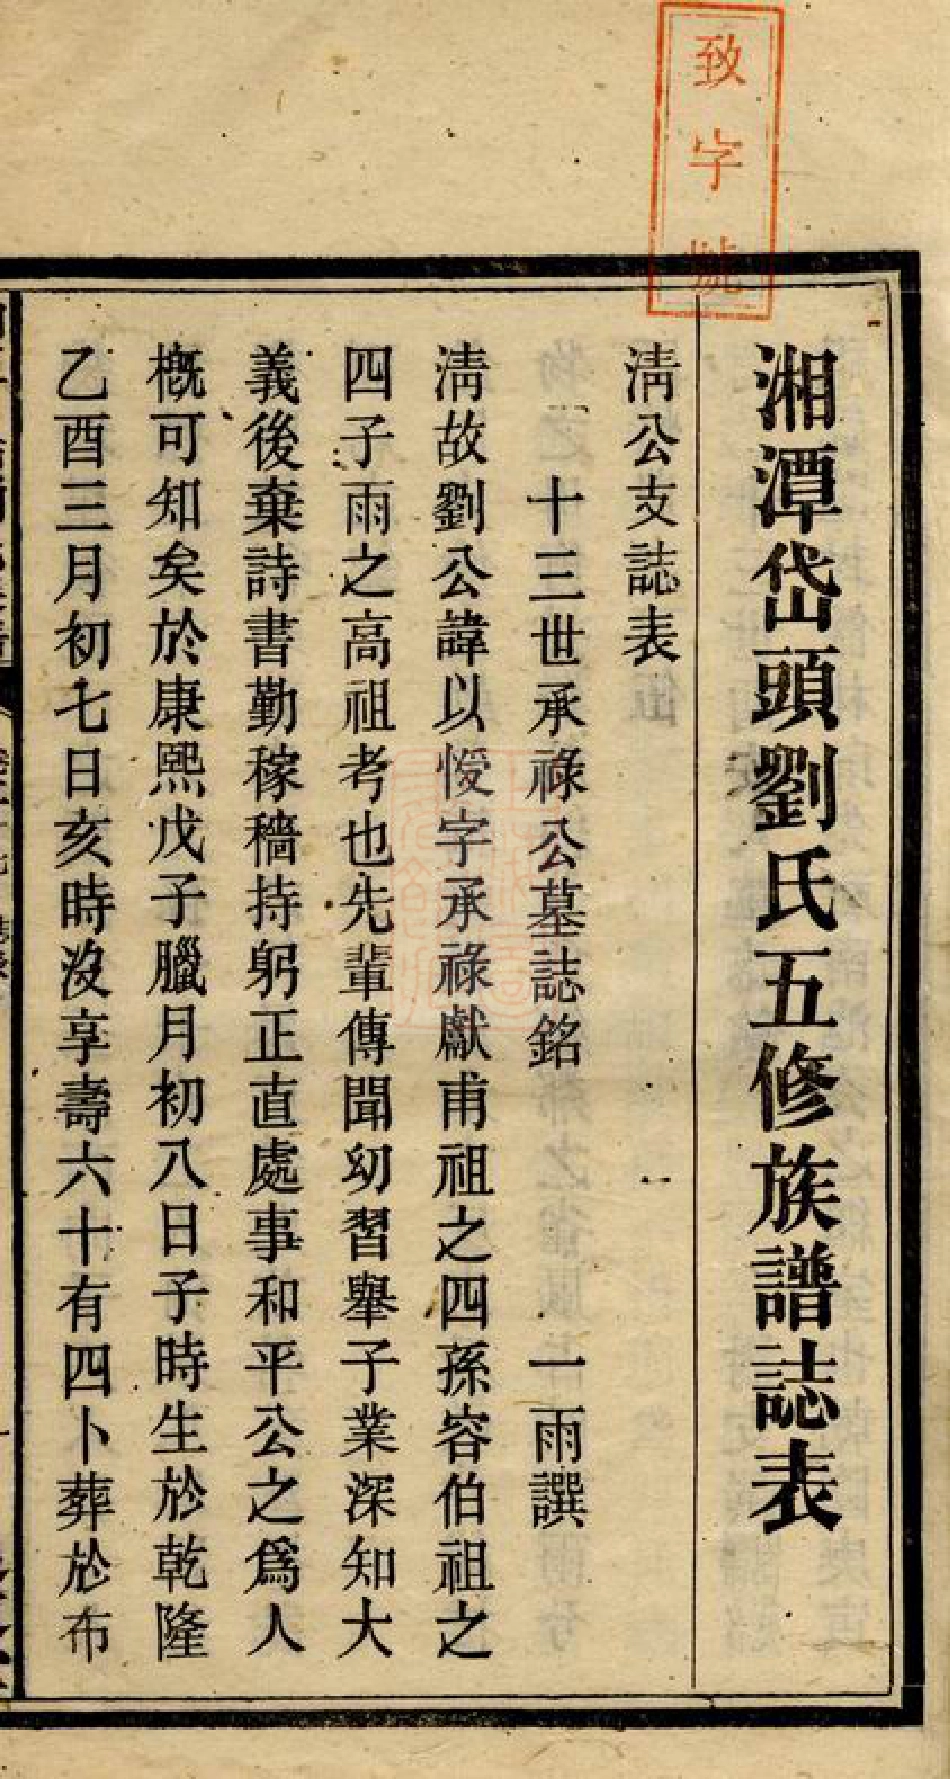 致字號
湘潭岱頭劉氏五修族譜誌表
淸公支誌表
十三世承祿公墓誌銘 一雨譔
淸故劉公諱以㥅字承祿獻甫祖之四孫容伯祖之
四子雨之高祖考也先輩傳聞幼習舉子業深知大
義後棄詩書勤稼穡持躬正直處事和平公之爲人
槪可知矣於康熙戊子臘月初八日子時生於乾隆
乙酉三月初七日亥時沒享壽六十有四卜葬於布